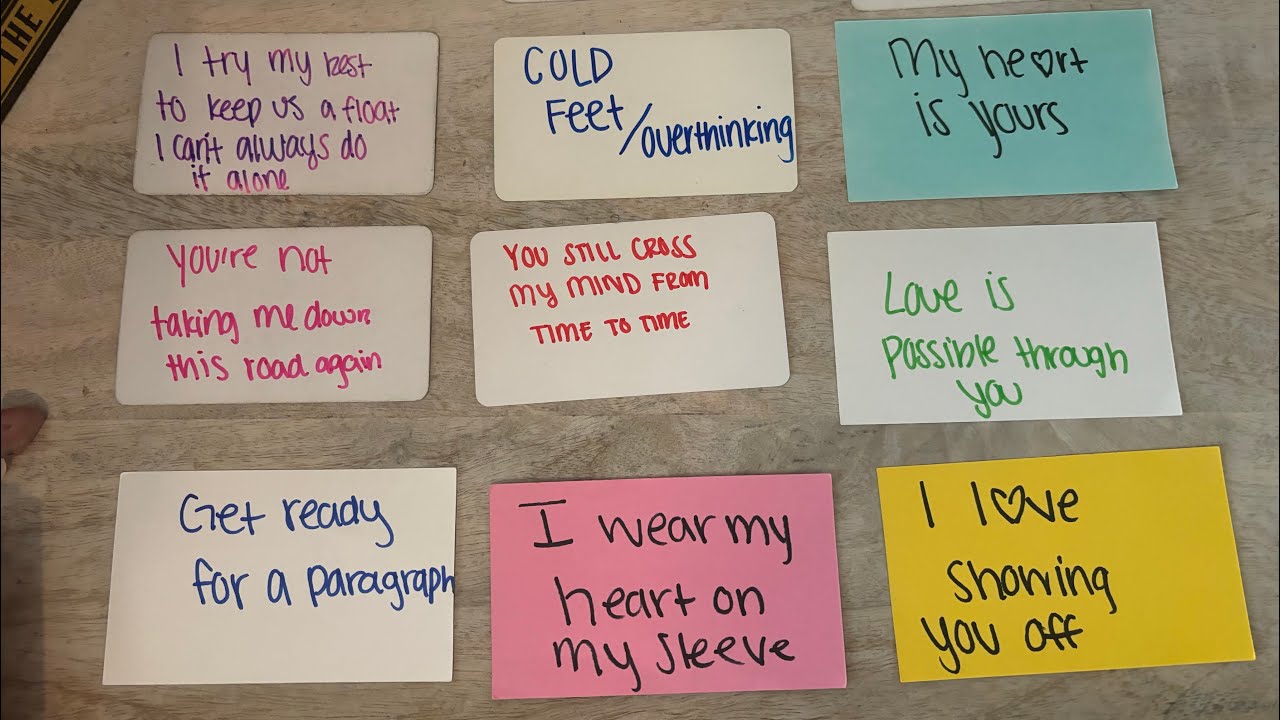 THE
I try my best
to keep us a float
I can't always do
it alone
COLD
Feet/overthinking
My he♡rt
is yours
You're not
taking me down
this road again
YOU STILL CROSS
MY MIND FROM
TIME TO TIME
Love is
possible through
you
Get ready
for a paragraph
I wear my
heart on
my sleeve
I l♡ve
showing
you off